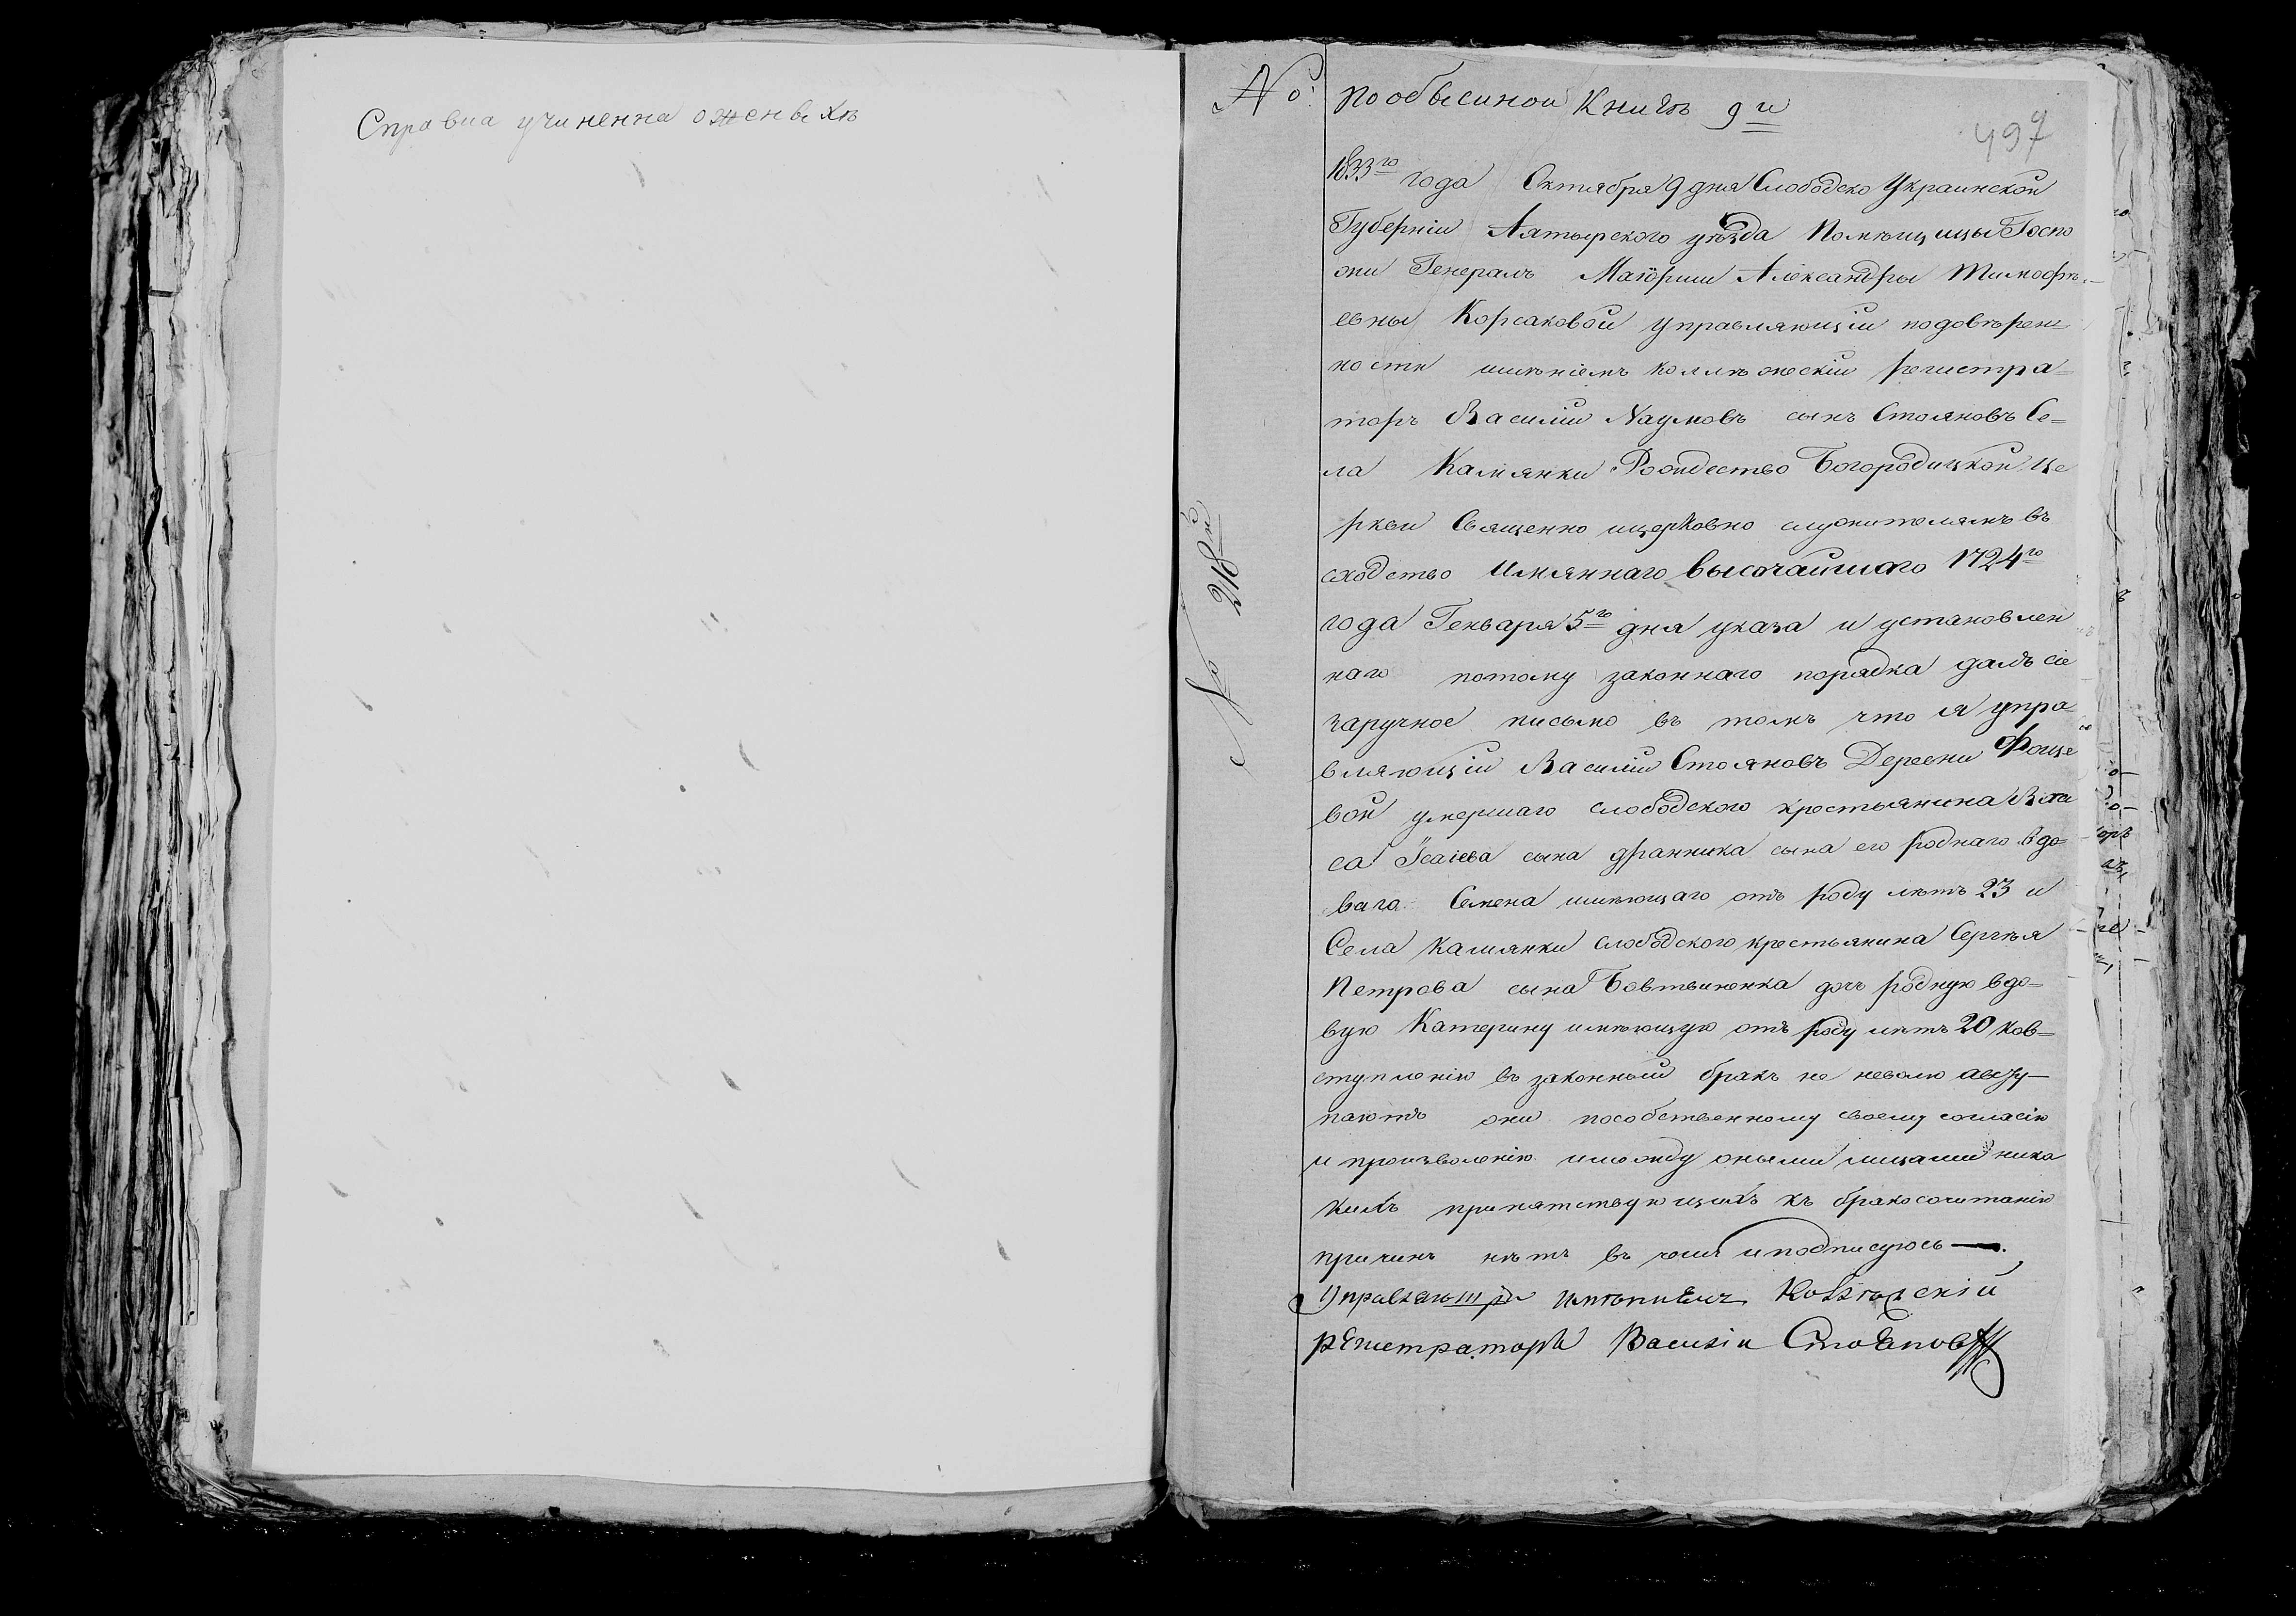 Справка учиненна оженихѣ
№ пообысиной Книгѣ 9й
497
№ 218й
1833го года Октября 9 дня Слободско Украинской
Губерніи Ахтырского уѣзда Помѣщицы Госпо
жи Генералъ Маіорши Александры Тимофѣ-
евны Корсаковой управляющій подовѣрен
ности имѣніемъ коллѣжескій регистра=
торъ Василій Наумовъ сынъ Стояновъ Се=
ла Камянки Рождество Богородицкой це
ркви Священно ицерковно служителямъ въ
сходство Имяннаго высочайшаго 1724го
года Генваря 5го дня указа и установлен
наго потому законнаго порядка далъ сіе
заручное письмо въ томъ что я упра
вляющій Василій Стояновъ Деревни Фоще
вой умершаго слободского крестьянина Вла
са Ісаіева сына дранника сына его роднаго вдо=
ваго Семена имѣющаго отъ роду лѣтъ 23 и
Села Камянки слободского крестьянина Сергѣя
Петрова сына дочъ родную вдо=
вую Катерину имѣющую отъ роду лѣтъ 20 ков=
ступленію въ законный бракъ не неволю австу-
паютъ они пособственному своему согласію
и произволенію имежду оными лицами ника
кихъ припятствующихъ къ бракосочитанію
причинъ нѣтъ въ чемъ иподписуюсь —.
Управляющій имѣниемъ Коллѣжскій
регистраторъ Василіи Стоянов